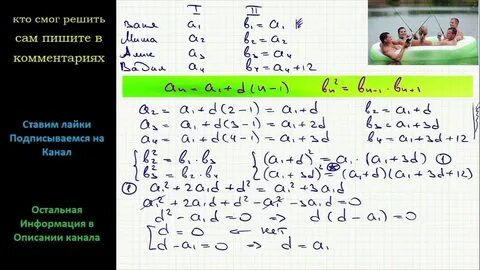 кто смог решить
сам пишите в
комментариях
Ставим лайки
Подписываемся на
Канал
Остальная
Информация в
Описании канала
I II
Ваня a₁ b₁ = a₁
Миша a₂ b₂ = a₂
Алик a₃ b₃ = a₄
Вадим a₄ b₄ = a₄ + 12
aₙ = a₁ + d(n-1) bₙ² = bₙ₋₁ · bₙ₊₁
a₂ = a₁ + d(2-1) = a₁ + d b₂ = a₁ + d
a₃ = a₁ + d(3-1) = a₁ + 2d b₃ = a₁ + 3d
a₄ = a₁ + d(4-1) = a₁ + 3d b₄ = a₁ + 3d + 12
{ b₂² = b₁ · b₃ { (a₁+d)² = a₁ · (a₁+3d) ①
b₃² = b₂ · b₄ (a₁+3d)² = (a₁+d)(a₁+3d+12)
① a₁² + 2a₁d + d² = a₁² + 3a₁d
a₁² + 2a₁d + d² - a₁² - 3a₁d = 0
d² - a₁d = 0 ⇒ d(d - a₁) = 0
[ d = 0 ← нет
d - a₁ = 0 ⇒ d = a₁